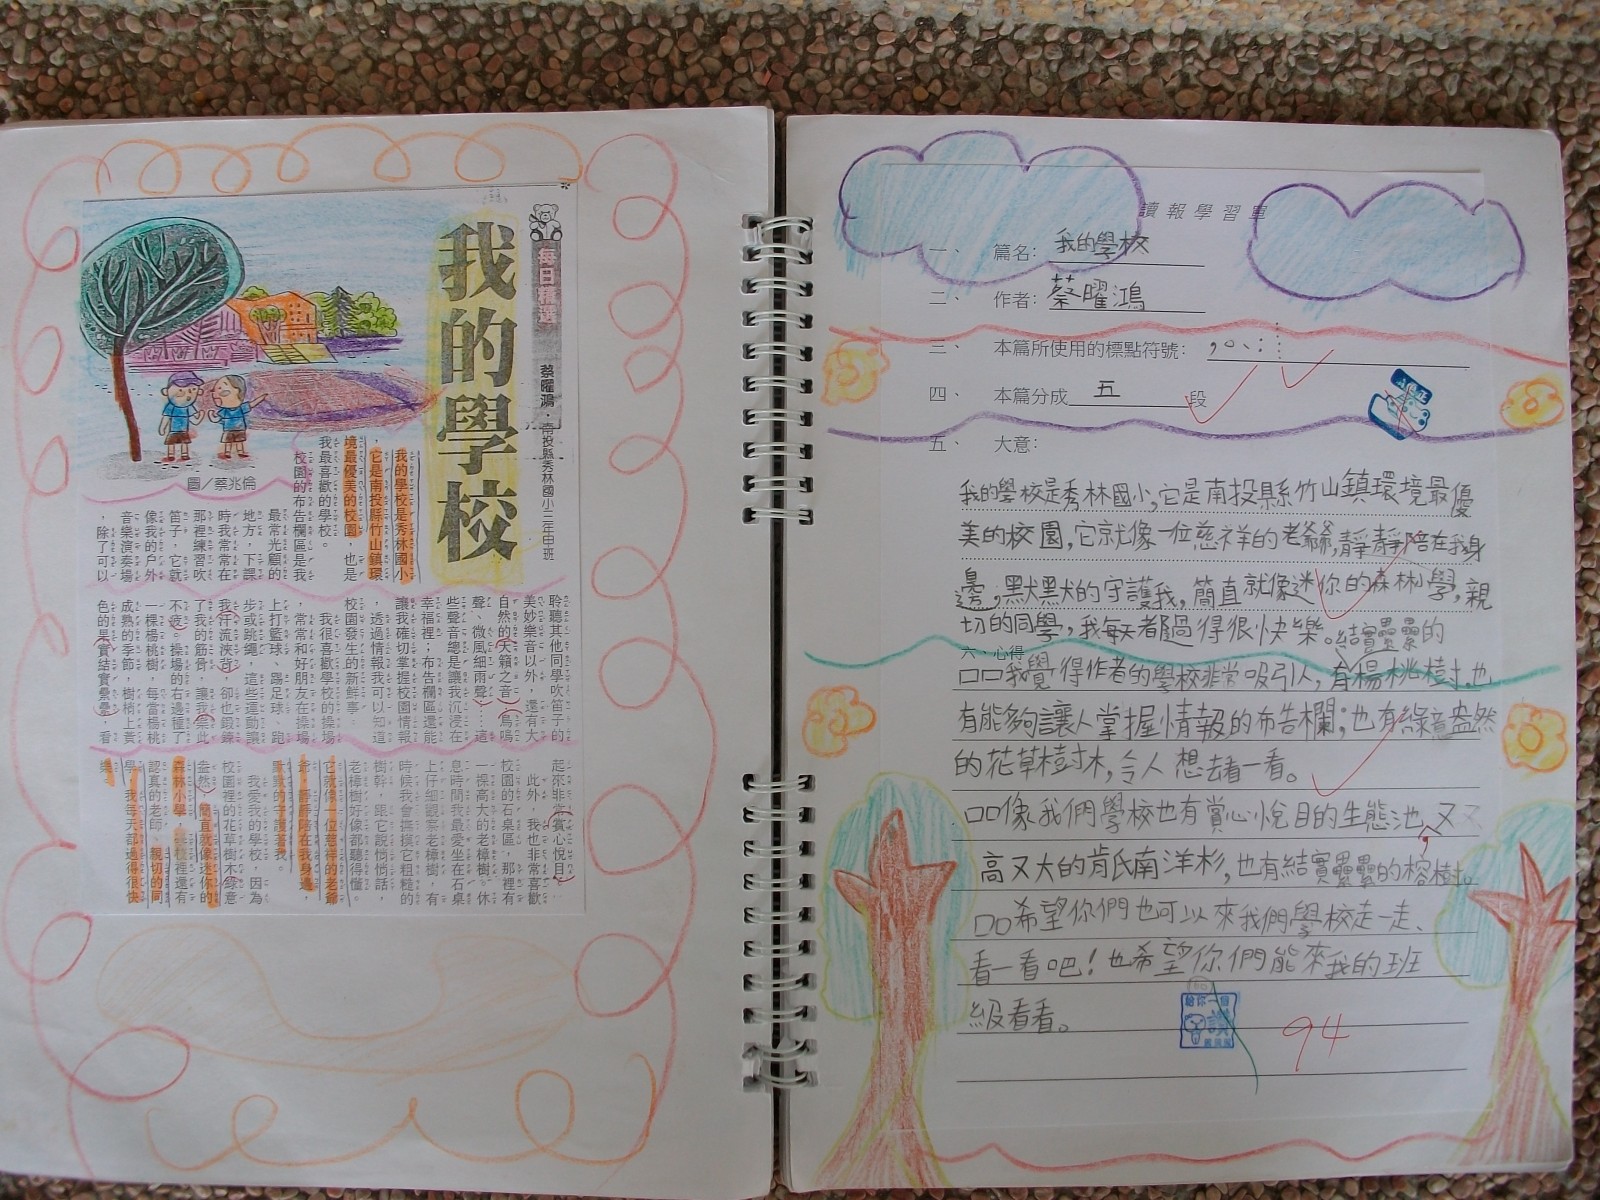 每日精選
我的學校
蔡曜鴻．南投縣秀林國小二年甲班
圖／蔡兆倫
我的學校是秀林國小
，它是南投縣竹山鎮環
境最優美的校園，也是
我最喜歡的學校。
校園的布告欄區是我
最常光顧的
地方，下課
時我常常在
那裡練習吹
笛子，它就
像我的戶外
音樂演奏場
，除了可以
聆聽其他同學吹笛子的
美妙樂音以外，還有大
自然的天籟之音，鳥鳴
聲、微風細雨聲……這
些聲音總是讓我沉浸在
幸福裡；布告欄區還能
讓我確切掌握校園情報
，透過情報我可以知道
校園發生的新鮮事。
我很喜歡學校的操場
，常常和好朋友在操場
上打籃球、踢足球、跑
步或跳繩，這些運動讓
我汗流浹背，卻也鍛鍊
了我的筋骨，讓我樂此
不疲。操場的右邊種了
一棵楊桃樹，每當楊桃
成熟的季節，樹梢上黃
色的果實結實纍纍，看
起來非常賞心悅目。
此外，我也非常喜歡
校園的石桌區，那裡有
一棵高大的老樟樹。休
息時間我最愛坐在石桌
上仔細觀察老樟樹，有
時候我會摸摸它粗糙的
樹幹，跟它說悄悄話，
老樟樹好像都聽得懂。
它就像一位慈祥的老爺
爺，靜靜陪在我身邊，
默默的守護著我。
我愛我的學校，因為
校園裡的花草樹木綠意
盎然，簡直就像迷你的
森林小學，學校裡還有
認真的老師、親切的同
學，我每天都過得很快
樂。
讀報學習單
一、 篇名：我的學校
二、 作者：蔡曜鴻
三、 本篇所使用的標點符號：，。、；……
四、 本篇分成五段
五、 大意：
我的學校是秀林國小，它是南投縣竹山鎮環境最優
美的校園，它就像一位慈祥的老爺爺，靜靜陪在我身
邊，默默的守護我，簡直就像迷你的森林小學，親
切的同學，我每天都過得很快樂。
六、心得
結實纍纍的
□□我覺得作者的學校非常吸引人，有楊桃樹，也
有能夠讓人掌握情報的布告欄；也有綠意盎然
的花草樹木，令人想去看一看。
□□像我們學校也有賞心悅目的生態池，又
高又大的肯氏南洋杉，也有結實纍纍的榕樹。
□□希望你們也可以來我們學校走一走、
看一看吧！也希望你們能來我的班
級看看。
給你一個
讚
94